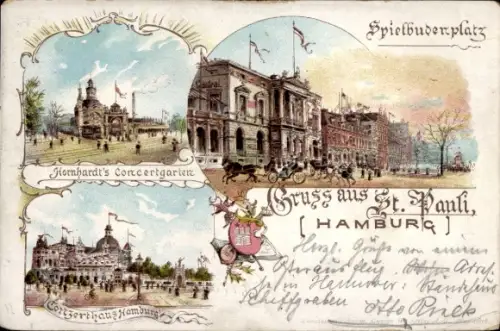 Spielbudenplatz
Hornhardt's Concertgarten
Gruss aus St. Pauli,
[HAMBURG]
Concerthaus Hamburg
Herzl. Grüße von einem
Osterausflug. Otto
in Hannover
Schiffgraben Otto